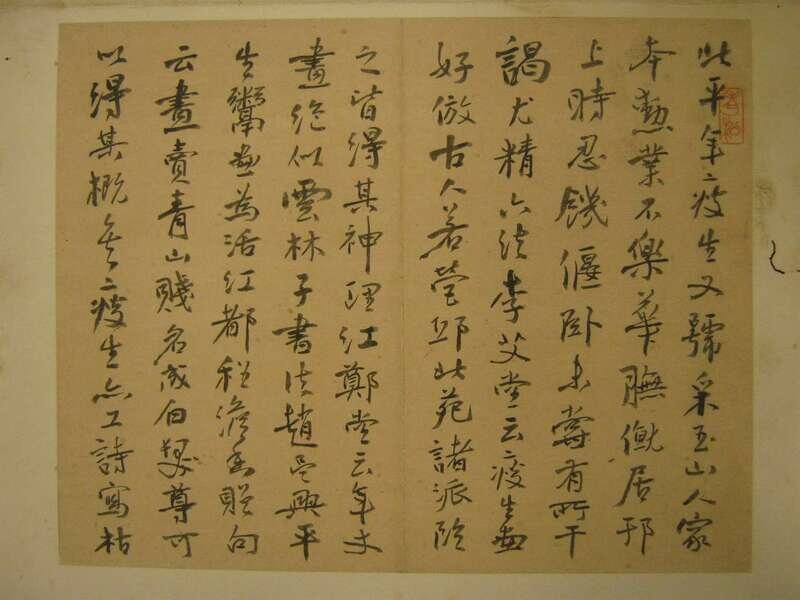 此平年二疲生又號采玉山人家
本勳業不樂華膴僦居邗
上時忍饑偃卧未嘗有所干
謁尤精六法李艾堂云瘦生畫
好倣古人若營邱北苑諸派臨
之皆得其神理江鄭堂云年丈
畫絕似雲林子書法趙吳興平
生鬻畫為活江都程澹園贈句
云畫賣青山賤名成白髮尊可
以得其概矣瘦生亦工詩寫枯